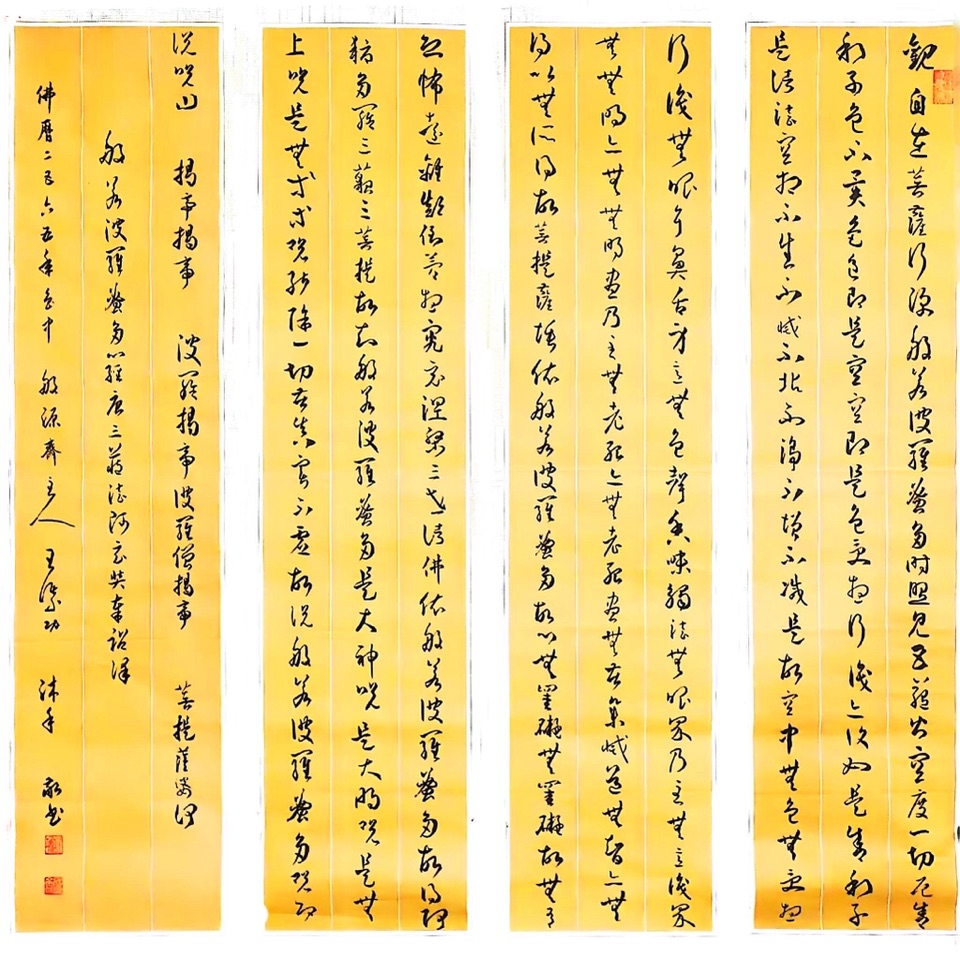 觀自在菩薩行深般若波羅蜜多時照見五蘊皆空度一切厄舍
利子色不異色色即是空空即是色受想行識亦復如是舍利子
是諸法空相不生不滅不垢不淨不增不減是故空中無色無受想
行識無眼耳鼻舌身意無色聲香味觸法無眼界乃至無意識界
無無明亦無無明盡乃至無老死亦無老死盡無苦集滅道無智亦無
得以無所得故菩提薩埵依般若波羅蜜多故心無罣礙無罣礙故無有
恐怖遠離顛倒夢想究竟涅槃三世諸佛依般若波羅蜜多故得阿
耨多羅三藐三菩提故知般若波羅蜜多是大神咒是大明咒是無
上咒是無等等咒能除一切苦真實不虛故說般若波羅蜜多咒即
說咒曰 揭帝揭帝 波羅揭帝 波羅僧揭帝 菩提薩婆訶
般若波羅蜜多心經唐三藏法師玄奘奉詔譯
佛曆二五六五年 般源齋主人 王 功 沐手 敬書